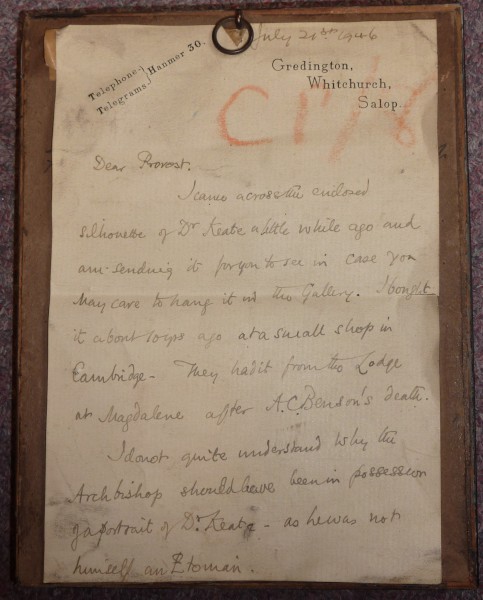 July 21st 1946
Telephone
Telegrams
Hanmer 30.
Gredington,
Whitchurch,
Salop.
Dear Provost.
I came across the enclosed
silhouette of Dr Keate a little while ago and
am sending it for you to see in case you
may care to hang it in the Gallery. I bought
it about 20 yrs ago at a small shop in
Cambridge - They had it from the Lodge
at Magdalene after A.C. Benson's death.
I do not quite understand why the
Archbishop should have been in possession
of a portrait of Dr Keate - as he was not
himself an Etonian.